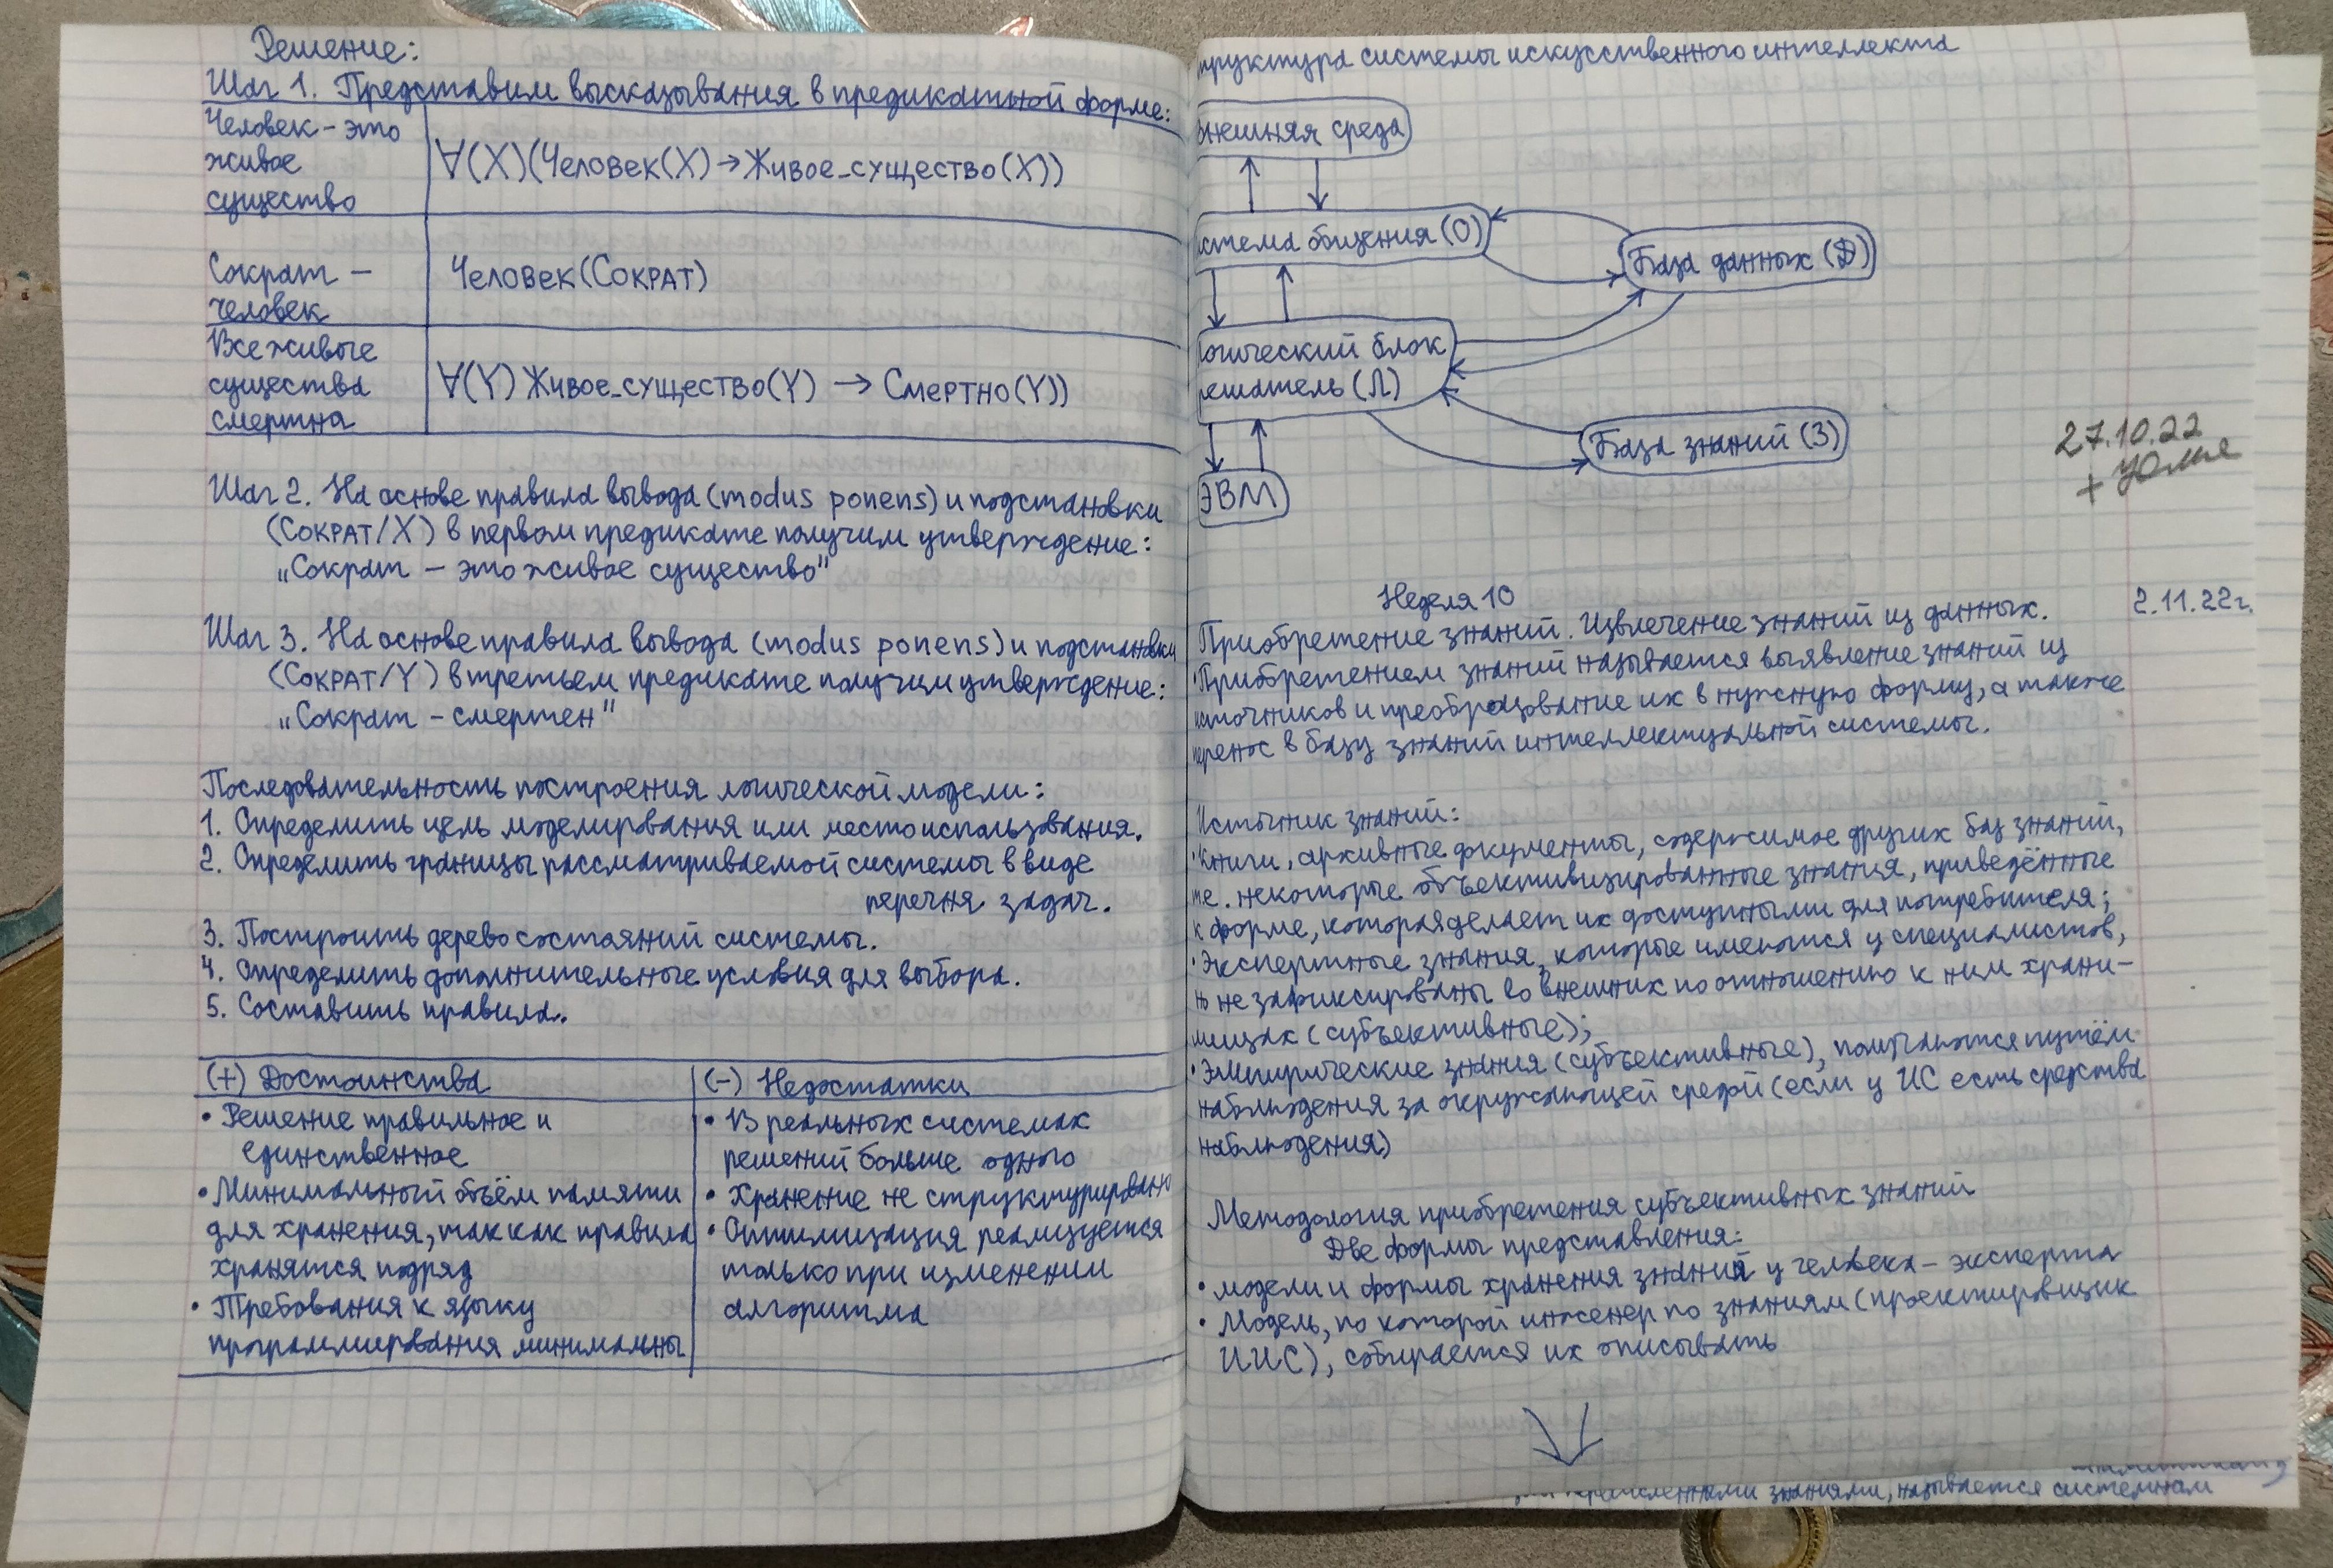 Решение:
Шаг 1. Представим высказывания в предикатной форме:
Человек – это
живое
существо
∀(X)(Человек(X)→Живое_существо(X))
Сократ –
человек
Человек(Сократ)
Все живые
существа
смертна
∀(Y) Живое_существо(Y) → Смертно(Y))
Шаг 2. На основе правила вывода (modus ponens) и подстановки
(Сократ/X) в первом предикате получим утверждение:
„Сократ – это живое существо"
Шаг 3. На основе правила вывода (modus ponens) и подстановки
(Сократ/Y) в третьем предикате получим утверждение:
„Сократ – смертен"
Последовательность построения логической модели:
1. Определить цель моделирования или место использования.
2. Определить границы рассматриваемой системы в виде
перечня задач.
3. Построить дерево состояний системы.
4. Определить дополнительные условия для выбора.
5. Составить правила.
(+) Достоинства
• Решение правильное и
единственное
• Минимальный объём памяти
для хранения, так как правила
хранятся подряд
• Требования к языку
программирования минимальны
(–) Недостатки
• В реальных системах
решений больше одного
• Хранение не структурировано
• Оптимизация реализуется
только при изменении
алгоритма
труктура системы искусственного интеллекта
внешняя среда
истема общения (О)
База данных (Д)
огический блок
решатель (Л)
База знаний (З)
ЭВМ
27.10.22
+
Неделя 10
2.11.22г.
Приобретение знаний. Извлечение знаний из данных.
•Приобретением знаний называется выявление знаний из
источников и преобразование их в нужную форму, а также
перенос в базу знаний интеллектуальной системы.
Источник знаний:
•книги, архивные документы, содержимое других баз знаний,
т.е. некоторые объективизированные знания, приведённые
к форме, которая делает их доступными для потребителя;
•Экспертные знания, которые имеются у специалистов,
но не зафиксированы во внешних по отношению к ним храни-
лищах (субъективные);
•Эмпирические знания (субъективные), получаются путём
наблюдения за окружающей средой (если у ИС есть средства
наблюдения)
Методология приобретения субъективных знаний
Две формы представления:
• модели и формы хранения знаний у человека – эксперта
• Модель, по которой инженер по знаниям (проектировщик
ИИС), собирается их описывать
знаниями, называется системном